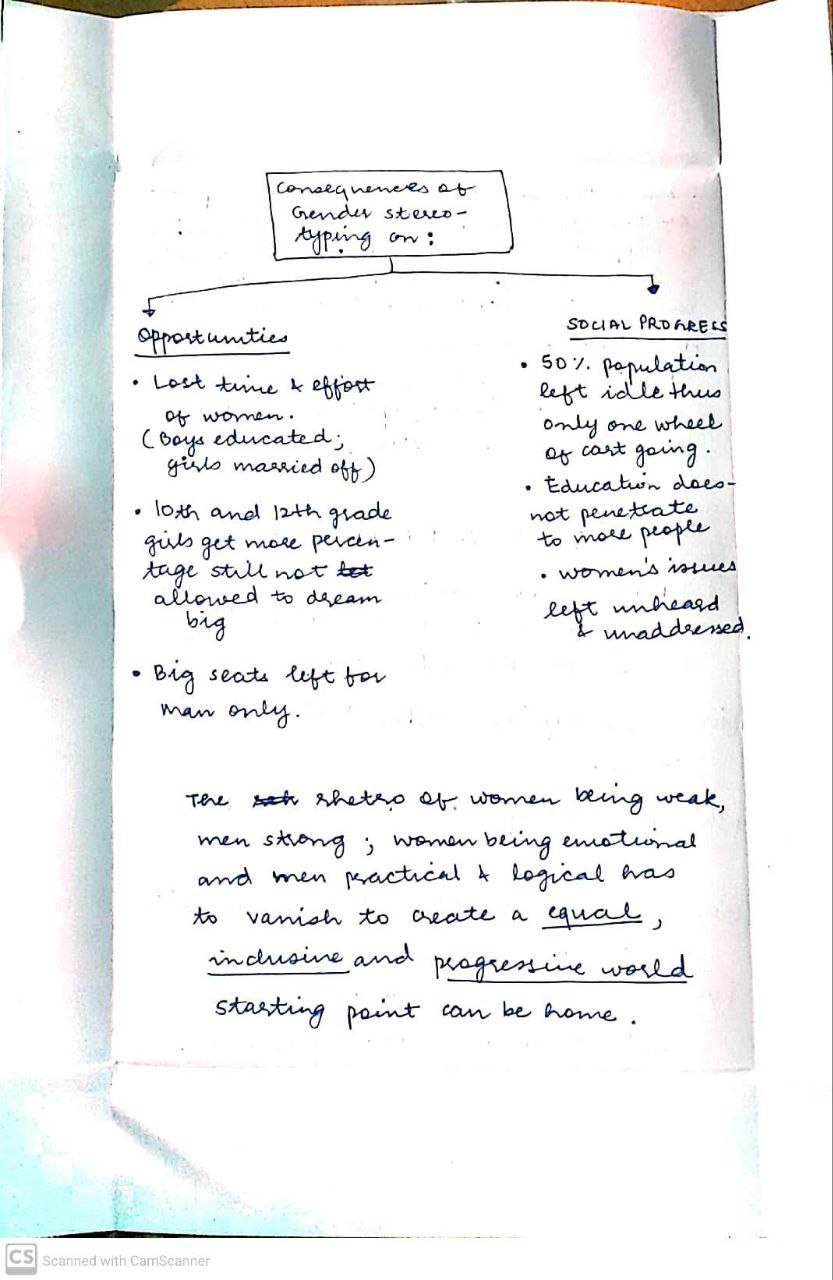 Consequences of
Gender stereo-
typing on :
Opportunities
• Lost time & effort
of women.
(Boys educated;
girls married off)
• 10th and 12th grade
girls get more percen-
tage still not let
allowed to dream
big
• Big seats left for
man only.
SOCIAL PROGRESS
• 50% population
left idle thus
only one wheel
of cart going.
• Education does-
not penetrate
to more people
• women's issues
left unheard
& unaddressed.
The rhetro of women being weak,
men strong ; women being emotional
and men practical & logical has
to vanish to create a equal,
inclusive and progressive world
starting point can be home.
CS Scanned with CamScanner